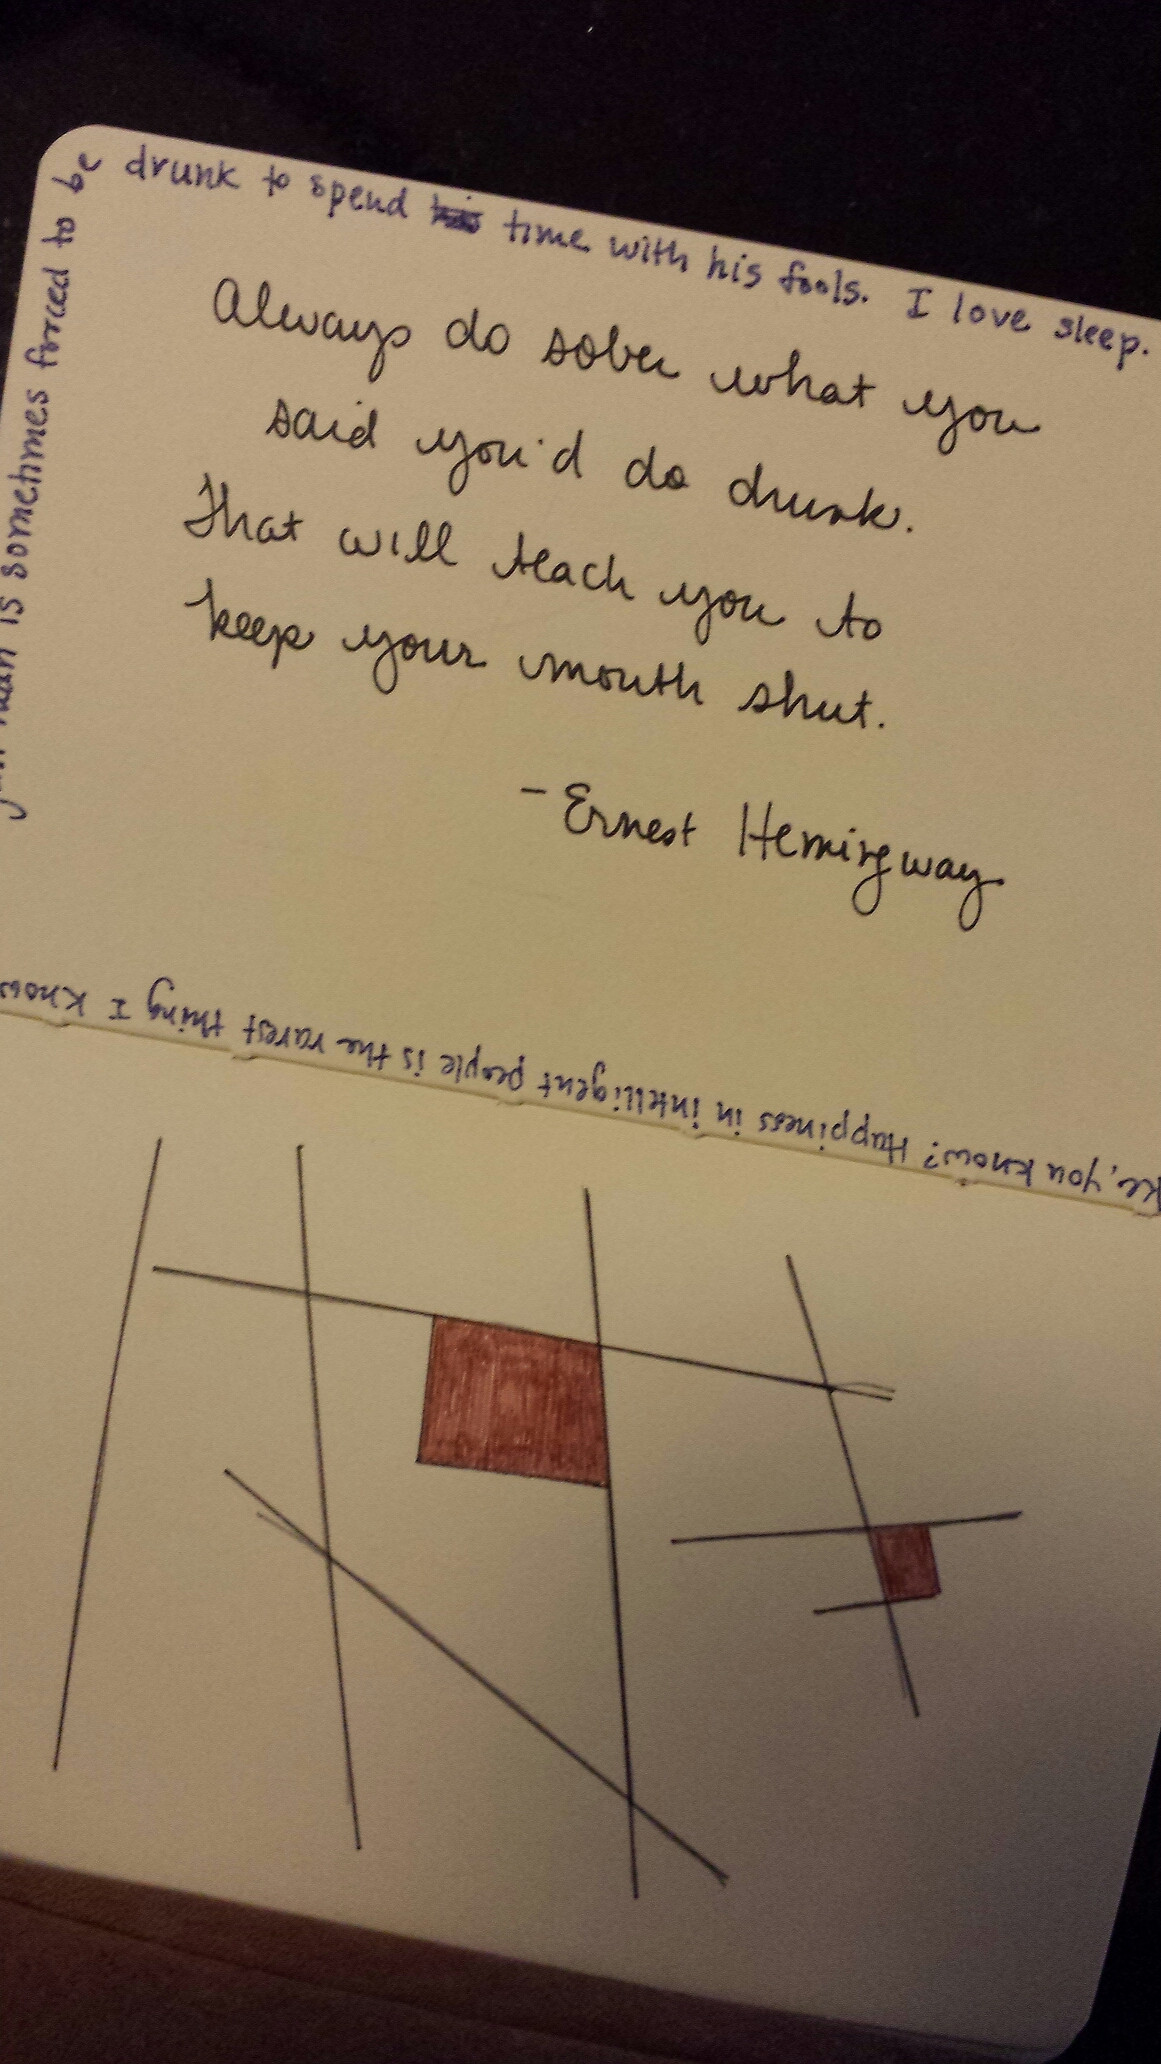 Always do sober what you
said you'd do drunk.
That will teach you to
keep your mouth shut.
- Ernest Hemingway
man is sometimes forced to be
drunk to spend time with his fools. I love sleep.
you know? Happiness in intelligent people is the rarest thing I know